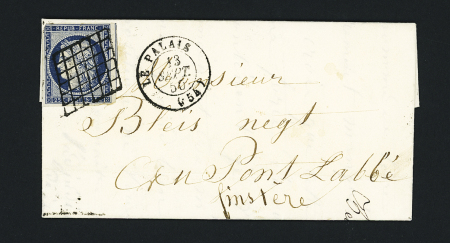 REPUB. FRANC.
LE PALAIS
13
SEPT.
50
(54)
Monsieur
Bleis negt
Au Pont Labbé
finstère